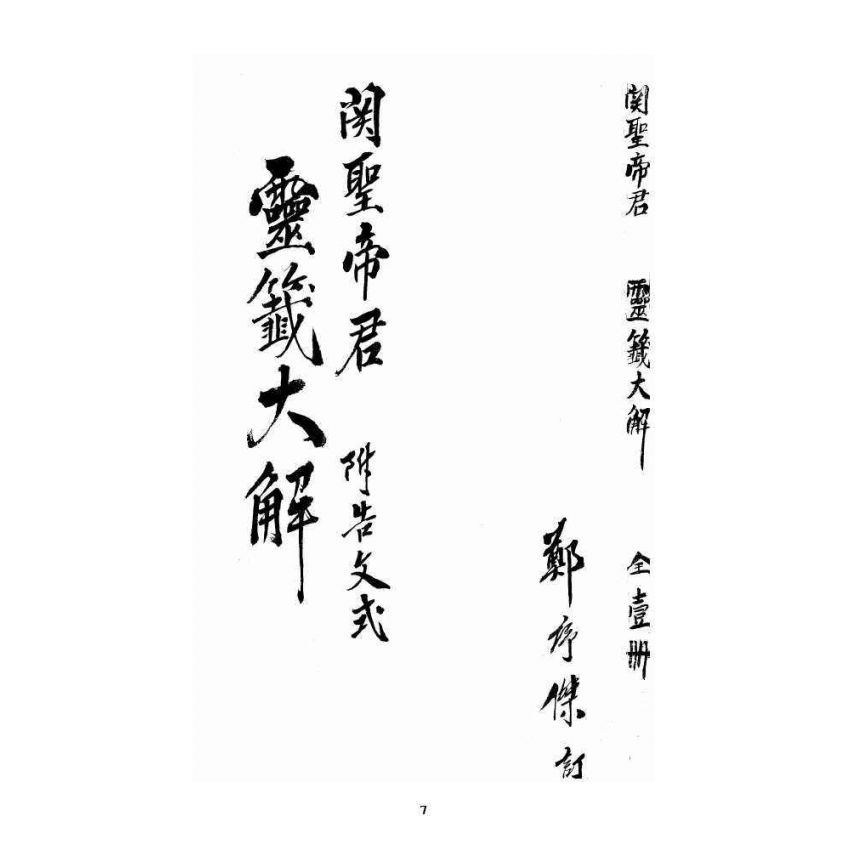 関聖帝君 靈籤大解 全壹冊
鄭序傑訂
関聖帝君 附告文式
靈籤大解
7